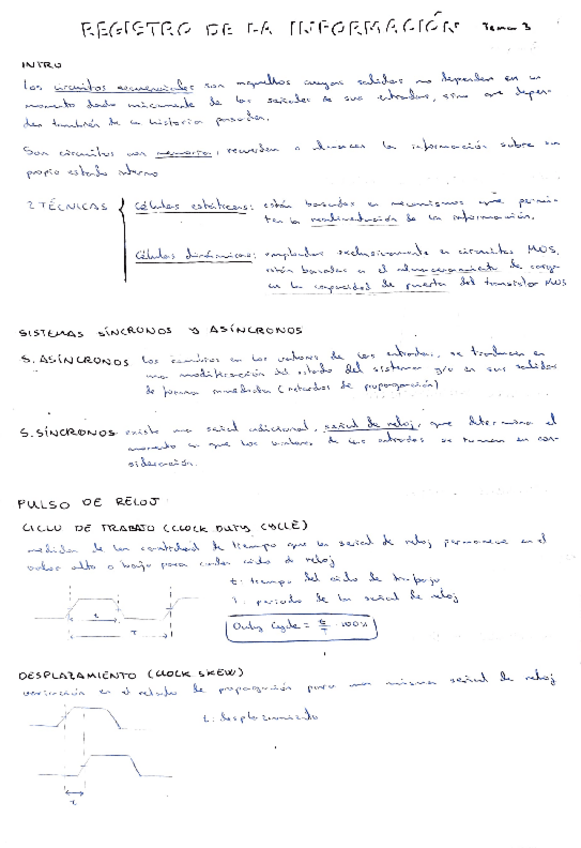 REGISTRO DE LA INFORMACIÓN Tema 3
INTRO
Los circuitos secuenciales son aquellos cuyas salidas no dependen en un
momento dado únicamente de las señales de sus entradas, sino que depen-
den también de la historia pasada.
Son circuitos con memoria, recuerdan o almacenan la información sobre su
propio estado interno
2 TÉCNICAS
Células estáticas: están basadas en mecanismos que permi-
ten la realimentación de la información.
Células dinámicas: empleadas exclusivamente en circuitos MOS,
están basadas en el almacenamiento de carga
en la capacidad de puerta del transistor MOS
SISTEMAS SÍNCRONOS Y ASÍNCRONOS
S. ASÍNCRONOS los cambios en los valores de las entradas, se traducen en
una modificación del estado del sistema y/o en sus salidas
de forma inmediata (retardos de propagación)
S. SÍNCRONOS existe una señal adicional, señal de reloj, que determina el
momento en que los valores de las entradas se toman en con-
sideración.
PULSO DE RELOJ
CICLO DE TRABAJO (CLOCK DUTY CYCLE)
medida de la cantidad de tiempo que la señal de reloj permanece en el
valor alto o bajo para cada ciclo de reloj
t: tiempo del ciclo de trabajo
T: periodo de la señal de reloj
t
T
Duty Cycle = t/T · 100%
DESPLAZAMIENTO (CLOCK SKEW)
variación en el retardo de propagación para una misma señal de reloj
τ: desplazamiento
τ